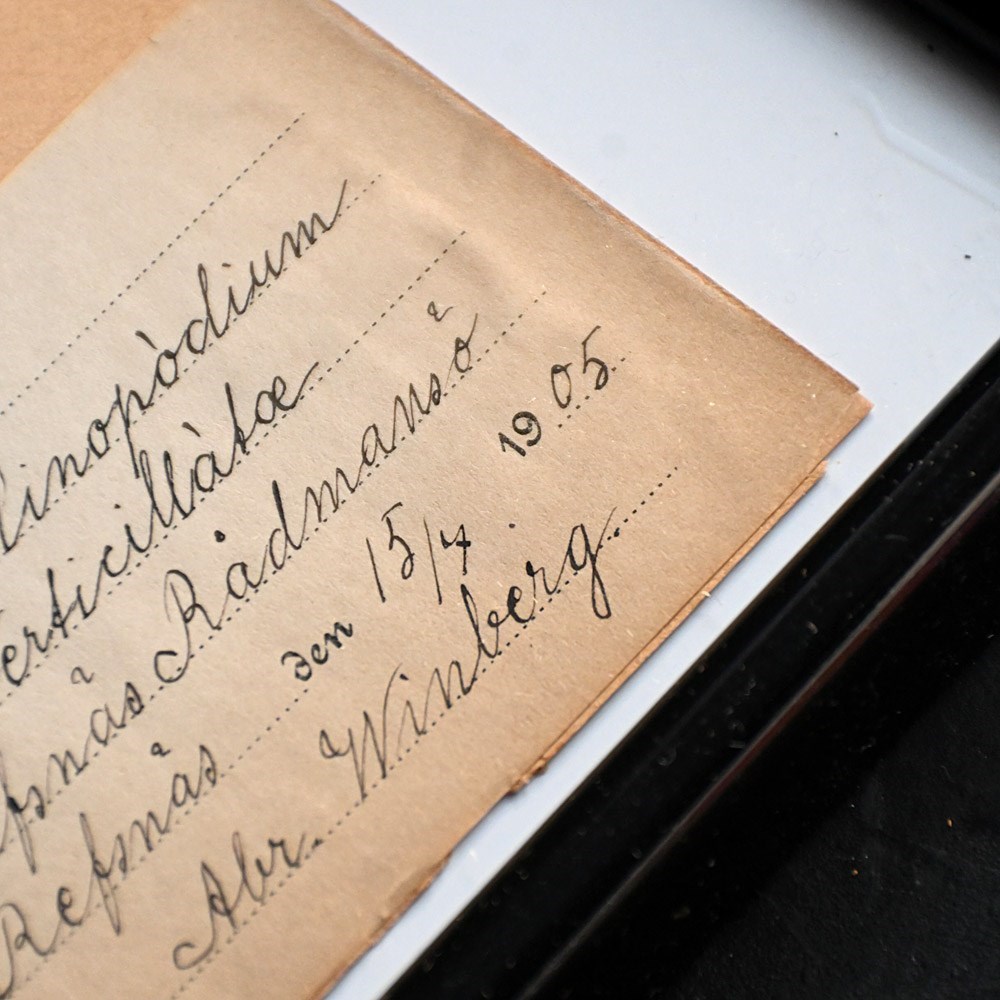 linopòdium
erticillàtæ
fsnås Rådmansö
Refsnås den 15/7 1905
Abr. Winberg.